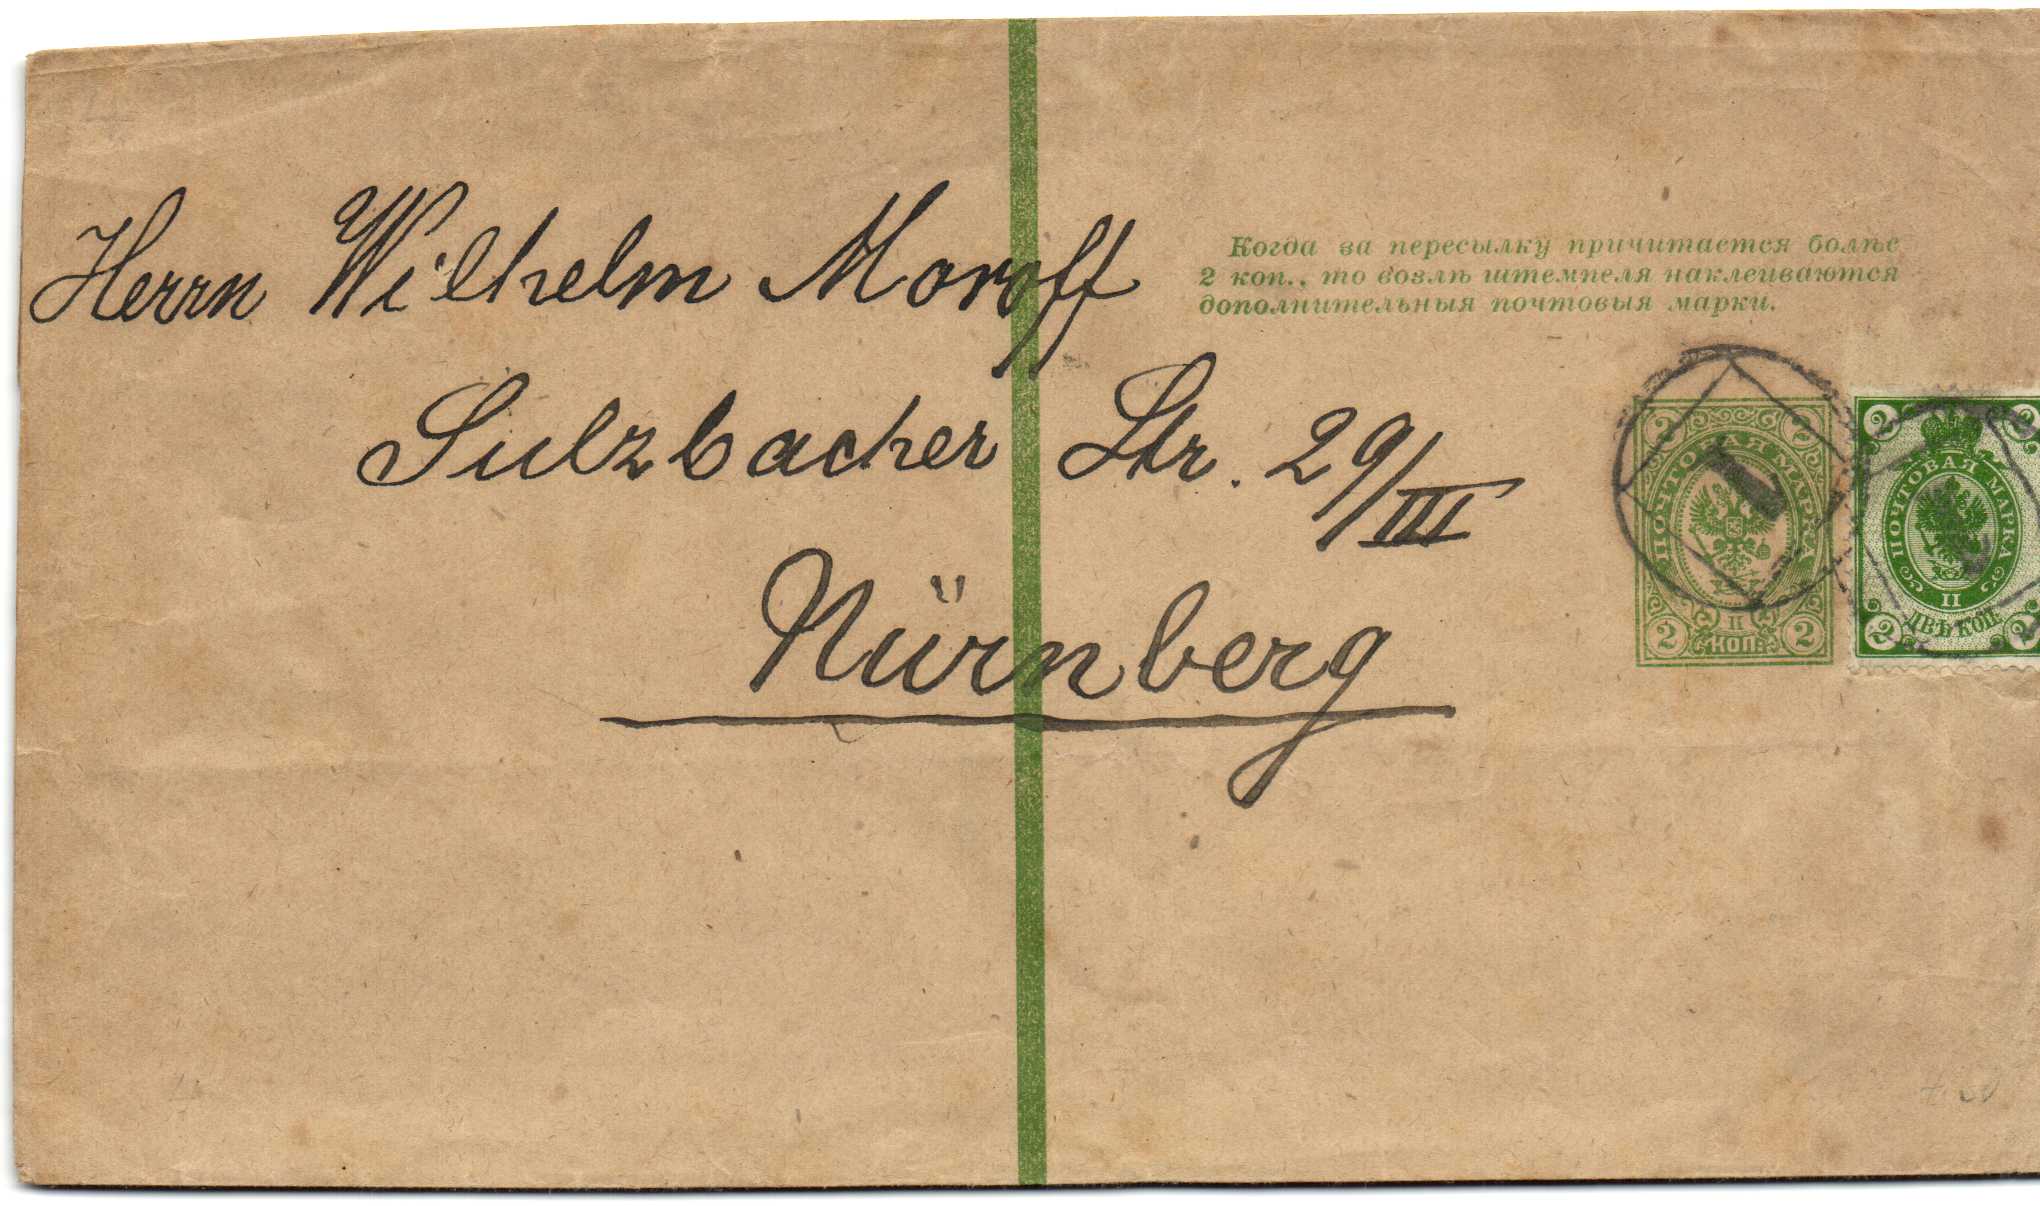 Herrn Wilhelm Moroff
Sulzbacher Str. 29/III
Nürnberg
Когда за пересылку причитается болѣе
2 коп., то возлѣ штемпеля наклеиваются
дополнительныя почтовыя марки.
2 2
ПОЧТОВАЯ МАРКА
II
2 КОП. 2
1
2 2
ПОЧТОВАЯ МАРКА
II
2 ДВѢ КОП. 2